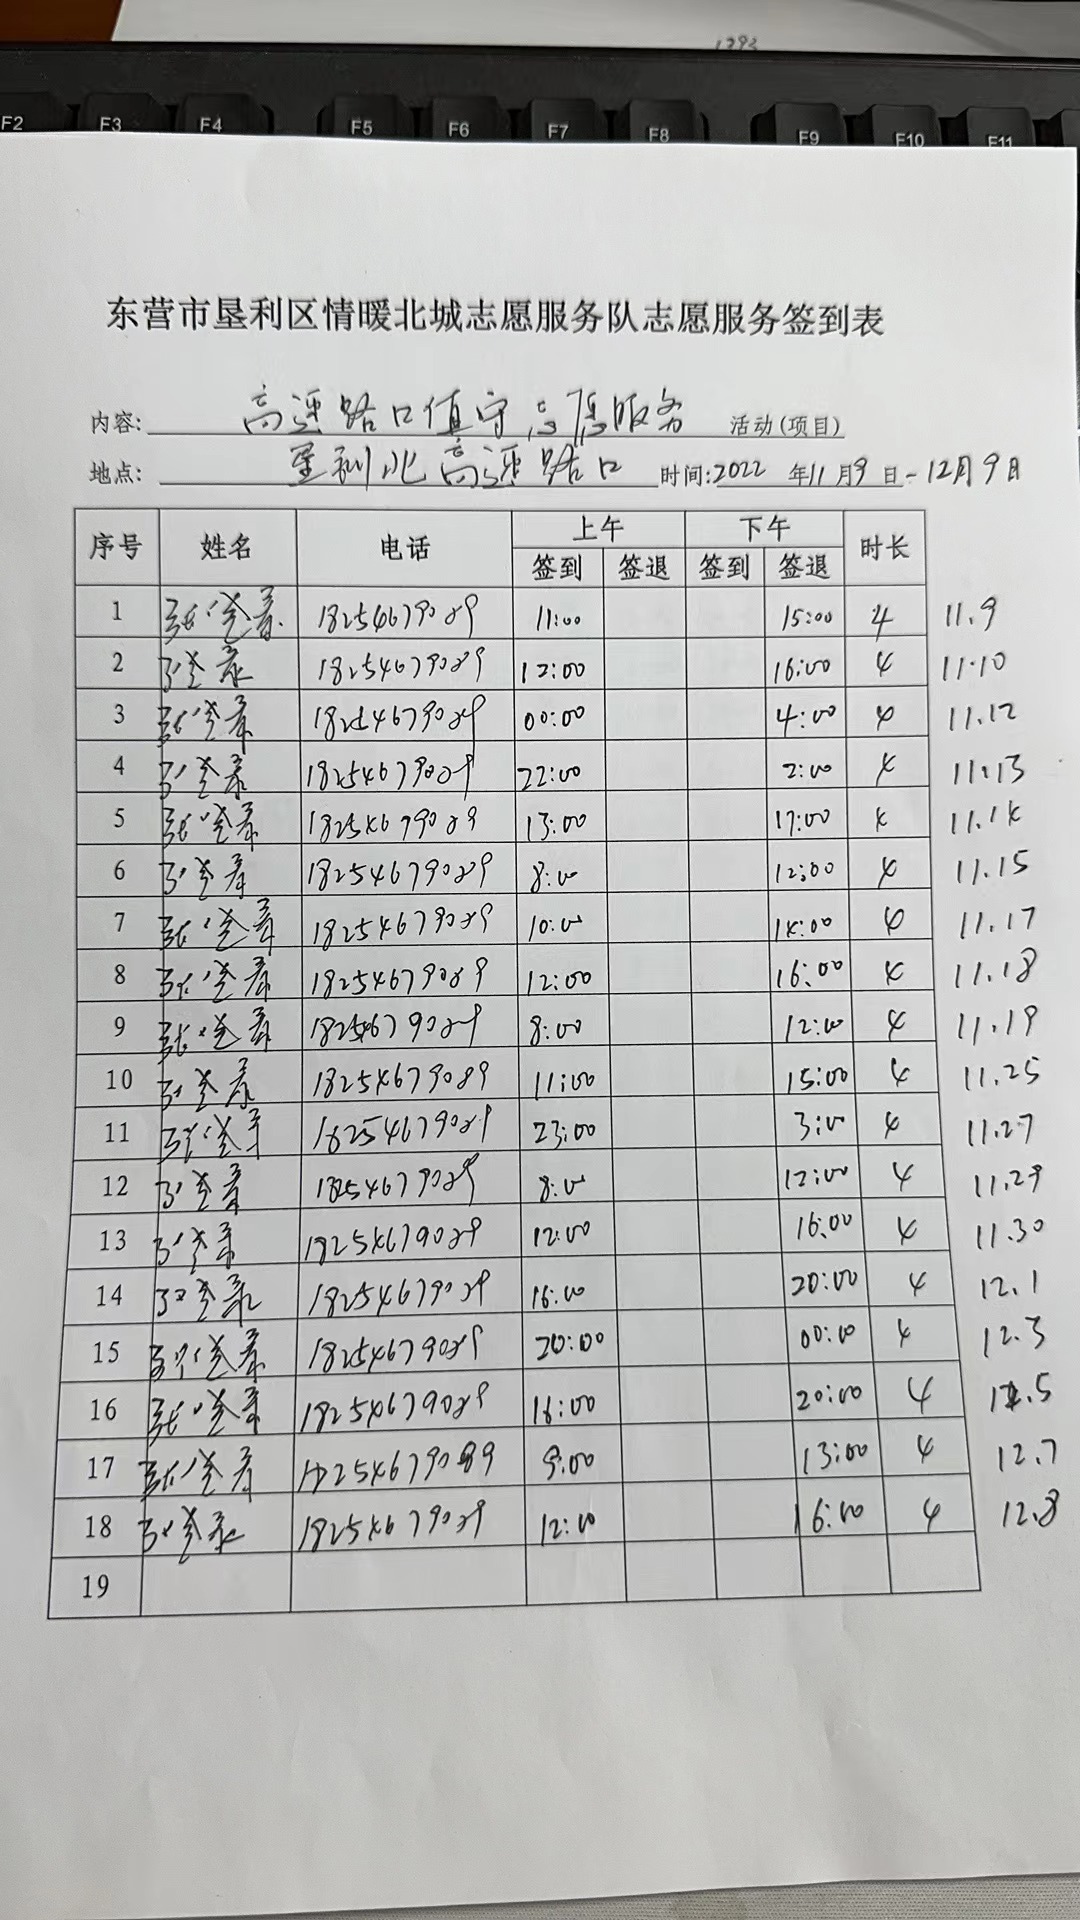 1292
F2 F3 F4 F5 F6 F7 F8 F9 F10 F11
东营市垦利区情暖北城志愿服务队志愿服务签到表
内容: 高速路口值守志愿服务 活动(项目)
地点: 垦利北高速路口 时间:2022 年11月9日-12月9日
序号 姓名 电话 上午 下午 时长
签到 签退 签到 签退
1 18254679029 11:00 15:00 4 11.9
2 18254679029 12:00 16:00 4 11.10
3 18254679029 00:00 4:00 4 11.12
4 18254679029 22:00 2:00 4 11.13
5 18254679029 13:00 17:00 4 11.14
6 18254679029 8:00 12:00 4 11.15
7 18254679029 10:00 14:00 4 11.17
8 18254679029 12:00 16:00 4 11.18
9 18254679029 8:00 12:00 4 11.19
10 18254679089 11:00 15:00 4 11.25
11 18254679029 23:00 3:00 4 11.27
12 18254679029 8:00 12:00 4 11.29
13 18254679029 12:00 16:00 4 11.30
14 18254679029 16:00 20:00 4 12.1
15 18254679029 20:00 00:00 4 12.3
16 18254679029 16:00 20:00 4 12.5
17 9:00 13:00 4 12.7
18 18254679029 12:00 16:00 4 12.8
19